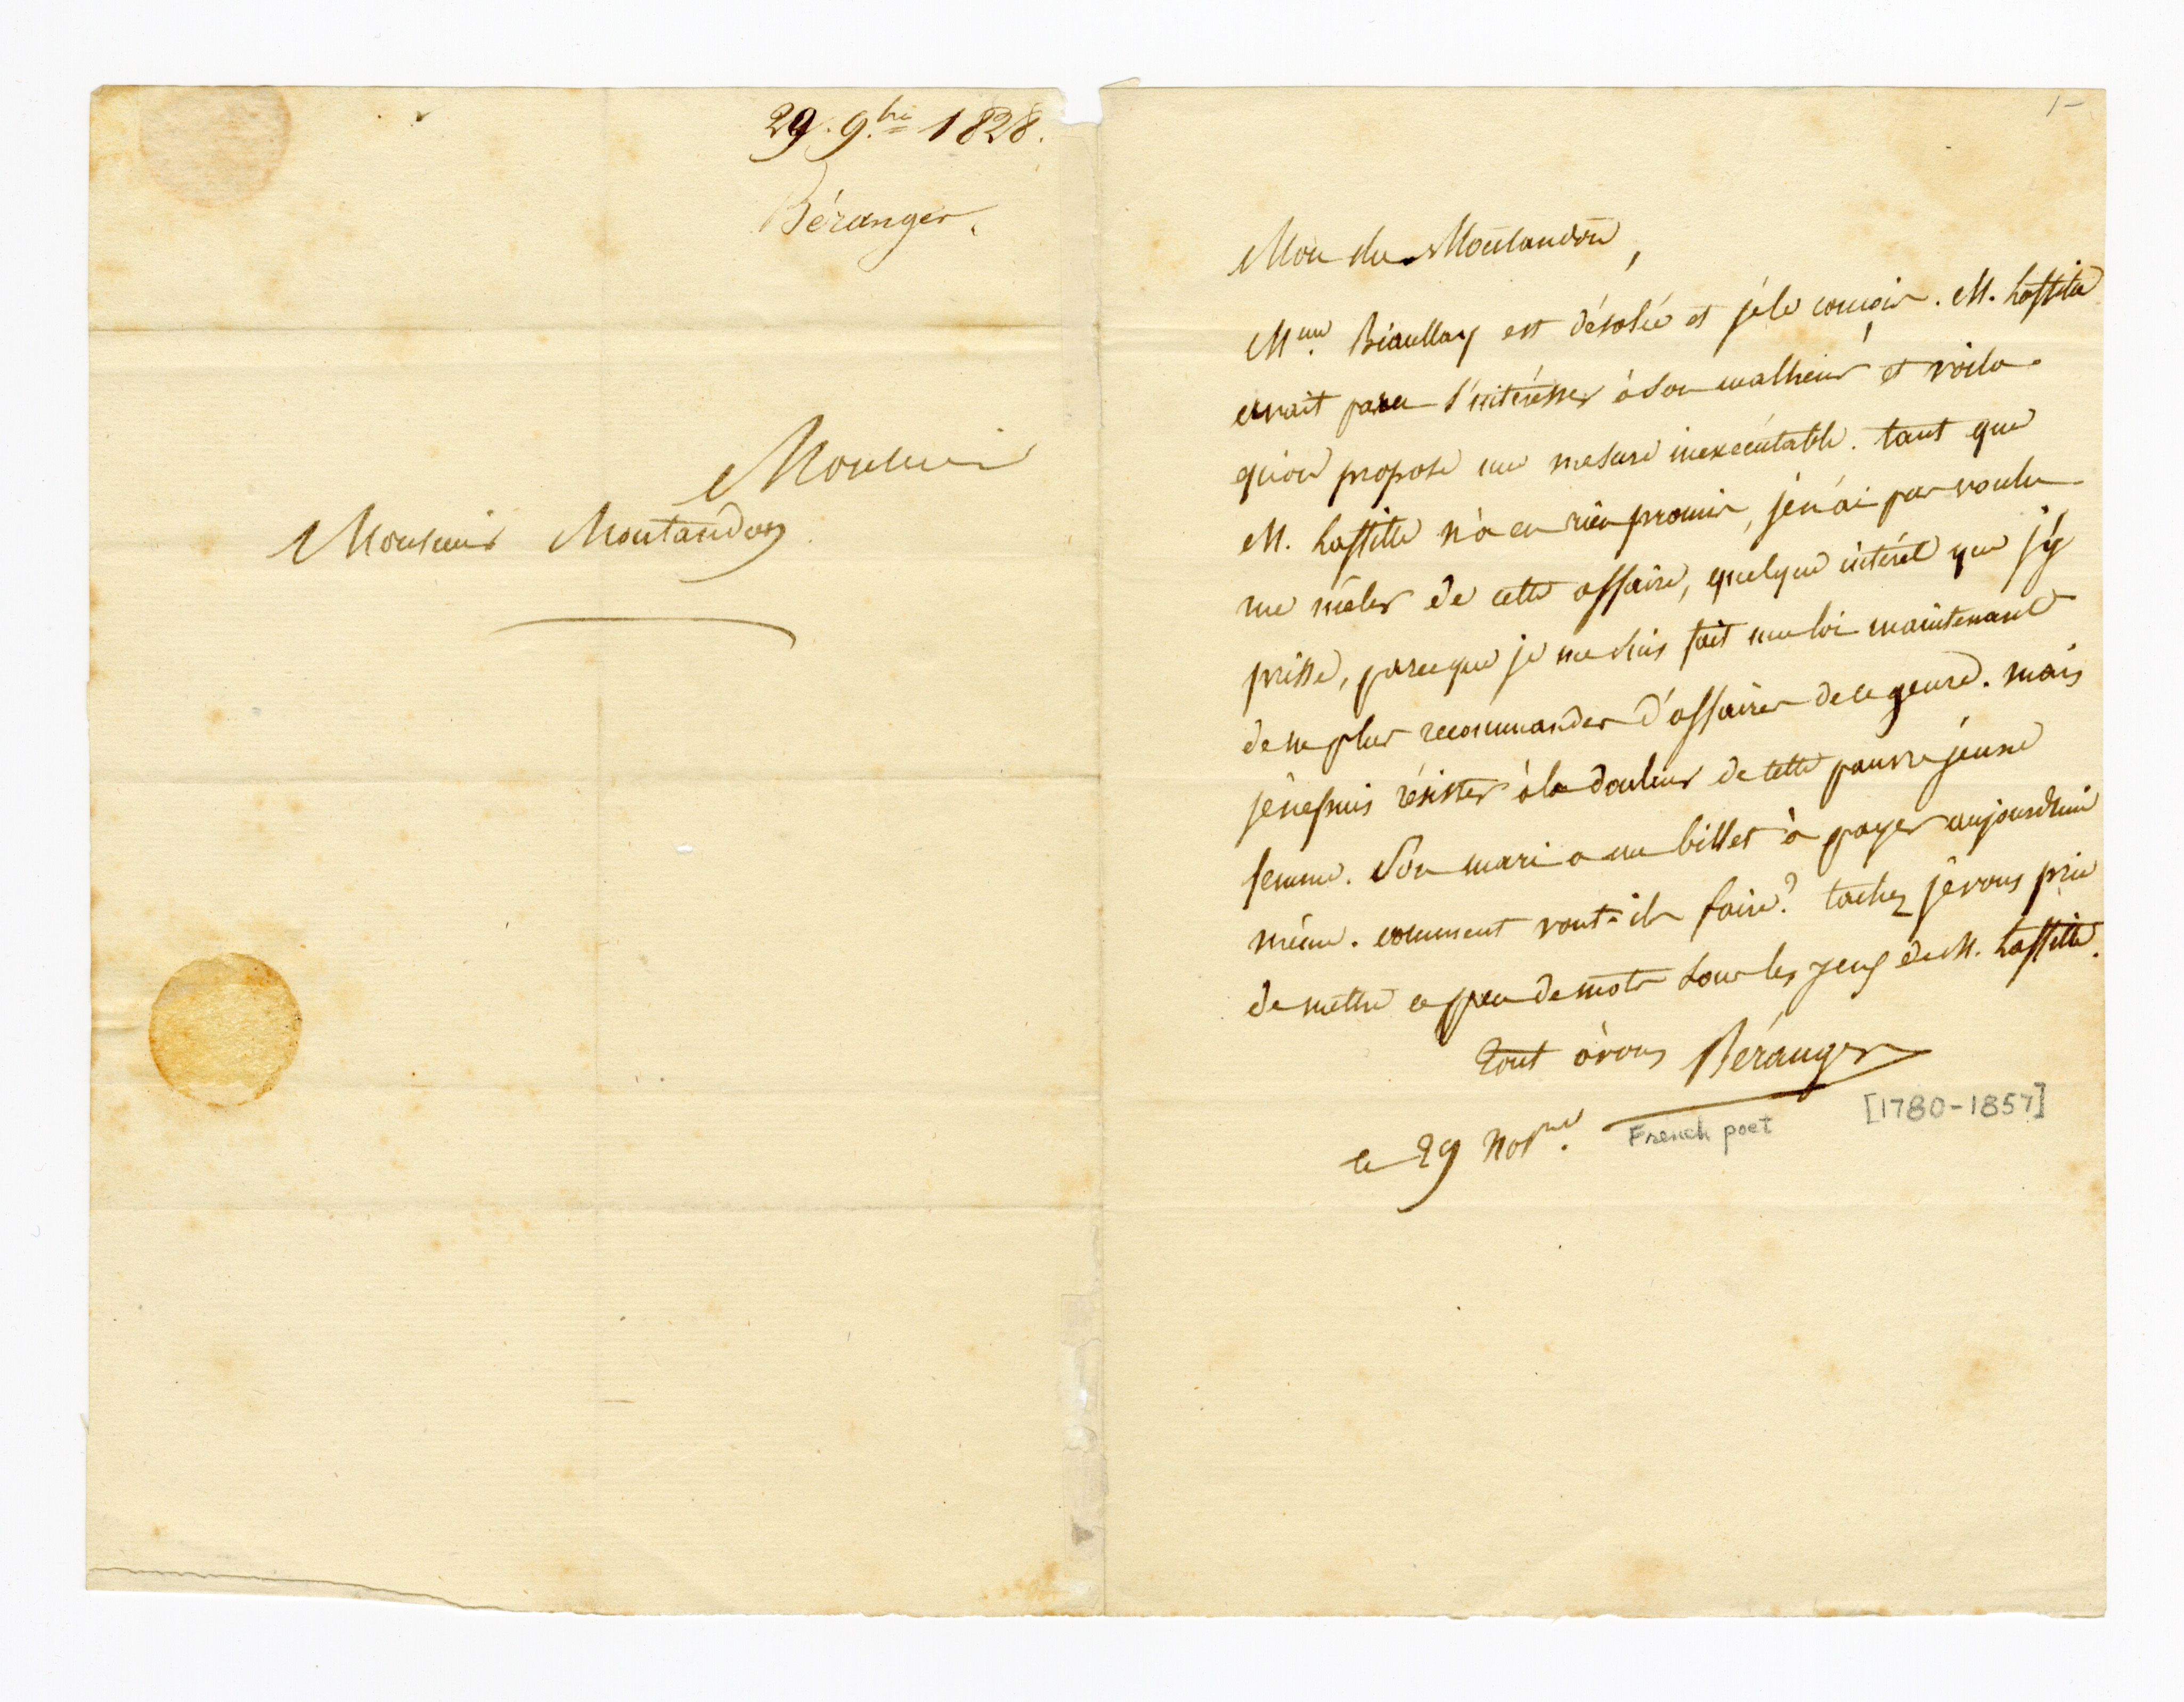 29. 9.bre 1828.
Béranger.
Monsieur
Monsieur Montandon
1-
Mon cher Montandon,
Mme. Biaullay est désolée et je le conçois. M. Laffitte
avait paru s'intéresser à son malheur et voila
qu'on propose une mesure inexécutable. tant que
M. Laffitte n'a eu rien promis, je n'ai pas voulu
me mêler de cette affaire, quelque intérêt que j'y
prisse, parceque je me suis fait une loi maintenant
de ne plus recommander d'affaires de ce genre. mais
je ne puis résister à la douleur de cette pauvre jeune
femme. Son mari a un billet à payer aujourd'hui
même. comment vont-ils faire? tachez je vous prie
de mettre ce peu de mots sous les yeux de M. Laffitte.
Tout à vous Béranger
[1780-1857]
French poet
le 29 Nov.bre